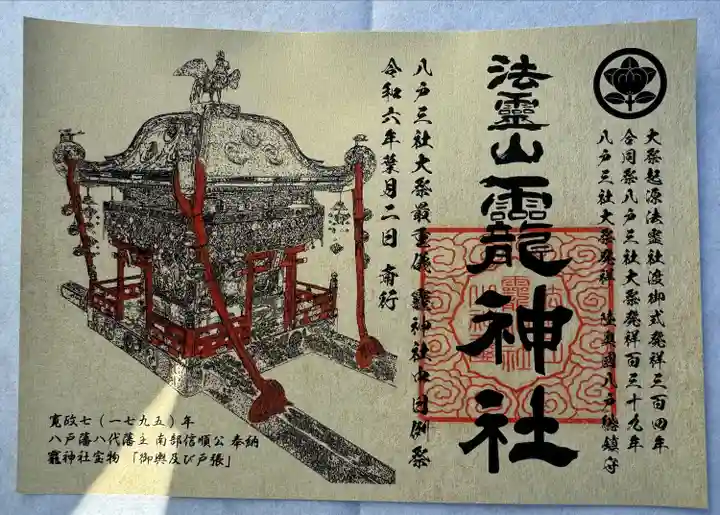 大祭起源法霊社渡御式発祥三百四年
合同祭八戸三社大祭発祥百三十九年
八戸三社大祭発社 陸奥國八戸總鎮守
法靈山龗神社
八戸三社大祭最重儀 龗神社中日例祭
令和六年葉月二日 斎行
寛政七(一七九五)年
八戸藩八代藩主 南部信順公 奉納
龗神社宝物 「御輿及び戸張」